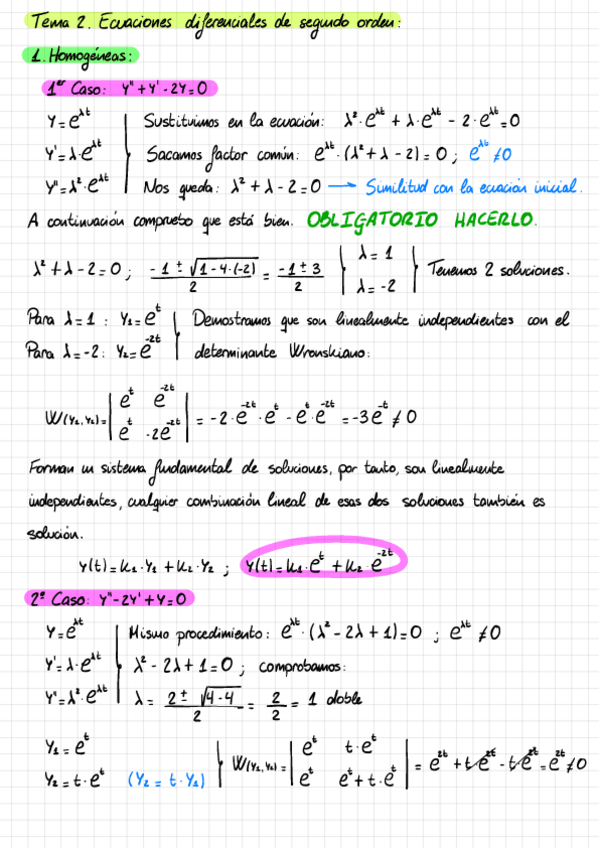 Tema 2. Ecuaciones diferenciales de segundo orden:
1. Homogéneas:
1er Caso: y'' + y' - 2y = 0
y = e^λt | Sustituimos en la ecuación: λ²·e^λt + λ·e^λt - 2·e^λt = 0
y' = λ·e^λt | Sacamos factor común: e^λt·(λ² + λ - 2) = 0 ; e^λt ≠ 0
y'' = λ²·e^λt | Nos queda: λ² + λ - 2 = 0 → Similitud con la ecuación inicial.
A continuación compruebo que está bien. OBLIGATORIO HACERLO.
λ² + λ - 2 = 0 ; (-1 ± √(1 - 4·(-2)))/2 = (-1 ± 3)/2 | λ = 1 | λ = -2 | Tenemos 2 soluciones.
Para λ = 1 : y₁ = e^t | Demostramos que son linealmente independientes con el
Para λ = -2 : y₂ = e^-2t | determinante Wronskiano:
W(y₁, y₂) = | e^t e^-2t | e^t -2e^-2t | = -2·e^-2t·e^t - e^t·e^-2t = -3e^-t ≠ 0
Forman un sistema fundamental de soluciones, por tanto, son linealmente
independientes, cualquier combinación lineal de esas dos soluciones también es
solución.
y(t) = k₁·y₁ + k₂·y₂ ; y(t) = k₁·e^t + k₂·e^-2t
2º Caso: y'' - 2y' + y = 0
y = e^λt | Mismo procedimiento: e^λt·(λ² - 2λ + 1) = 0 ; e^λt ≠ 0
y' = λ·e^λt | λ² - 2λ + 1 = 0 ; comprobamos:
y'' = λ²·e^λt | λ = (2 ± √(4 - 4))/2 = 2/2 = 1 doble
y₁ = e^t
y₂ = t·e^t (y₂ = t·y₁) | W(y₁, y₂) = | e^t t·e^t | e^t e^t + t·e^t | = e^2t + t·e^2t - t·e^2t = e^2t ≠ 0